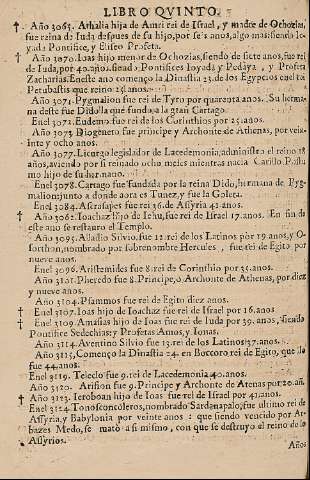 LIBRO QVINTO.
✝ Año 3065. Athalia hija de Amri rei de Israel, y madre de Ochozias,
fue reina de Iuda despues de su hijo, por seis años, algo mas: siendo Ioyada Pontifice, y Eliseo Profeta.
✝ Año 3070. Ioas hijo menor de Ochozias, siendo de siete años, fue rei
de Iuda, por 40. año. siendo Pontifices Ioyada y Pedaya, y Profeta
Zacharias. En este año començo la Dinastia 23. de los Egypcios en el rei
Petubastis que reino 25. años.
Año 3071. Pygmalion fue rei de Tyro por quarenta anos. Su hermana deste fue Dido, la que fundo a la gran Cartago.
Enel 3072. Eudemo fue rei de los Corinthios por 25. años.
Año 3073 Diogeneto fue principe y Archonte de Athenas, por veinte y ocho anos.
Año 3077. Licurgo legislador de Lacedemonia, administro el reino 18
años, aviendo por si reinado ocho meses mientras nacia Carillo Postumo hijo de su hermano.
Enel 3078. Cartago fue fundada por la reina Dido, hermana de Pygmalion: junto a donde aora es Tunez, y fue la Goleta.
Enel 3084. Afrafajes fue rei 36. de Assyria 42. anos.
✝ Año 3062. Ioachaz hijo de Iehu, fue rei de Israel 17. anos. En fin de
este ano se restauro el Templo.
Año 3095. Alladio Silvio, fue 12. rei de los Latinos por 19. anos, y Osorthon, nombrado por sobrenombre Hercules, fue rei de Egito por
nueve anos.
Enel 3096. Aristemides fue 8. rei de Corinthio por 35. anos.
Año 3101. Pheredo fue 8. Principe, o Archonte de Athenas, por diez
y nueve anos.
Año 3104. Psammos fue rei de Egito diez anos.
✝ Enel 3107. Ioas hijo de Ioachaz fue rei de Israel por 16. anos
✝ Enel 3109. Amasias hijo de Ioas fue rei de Iuda por 39. anos, siendo
Pontifice Sedechias: y Profetas Amos, y Ionas.
Año 3114. Aventino Silvio fue 13. rei de los Latinos 37. anos.
Año 3115. Començo la Dinastia 24. en Boccoro rei de Egito, que
fue 44. anos.
Enel 3119. Teleclo fue 9. rei de Lacedemonia 40. anos.
Año 3120. Arision fue 9. Principe y Archonte de Atenas por 20. añ.
✝ Año 3123. Ieroboan hijo de Ioas fue rei de Israel por 41. anos.
Enel 3124. Tonosconcoleros, nombrado Sardanapalo, fue ultimo rei de
Assyria, y Babylonia por veinte anos: que siendo vencido por Arbazes Medo, se mato a si mismo, con que se destruyo el reino de lo
Assyrios.
Años